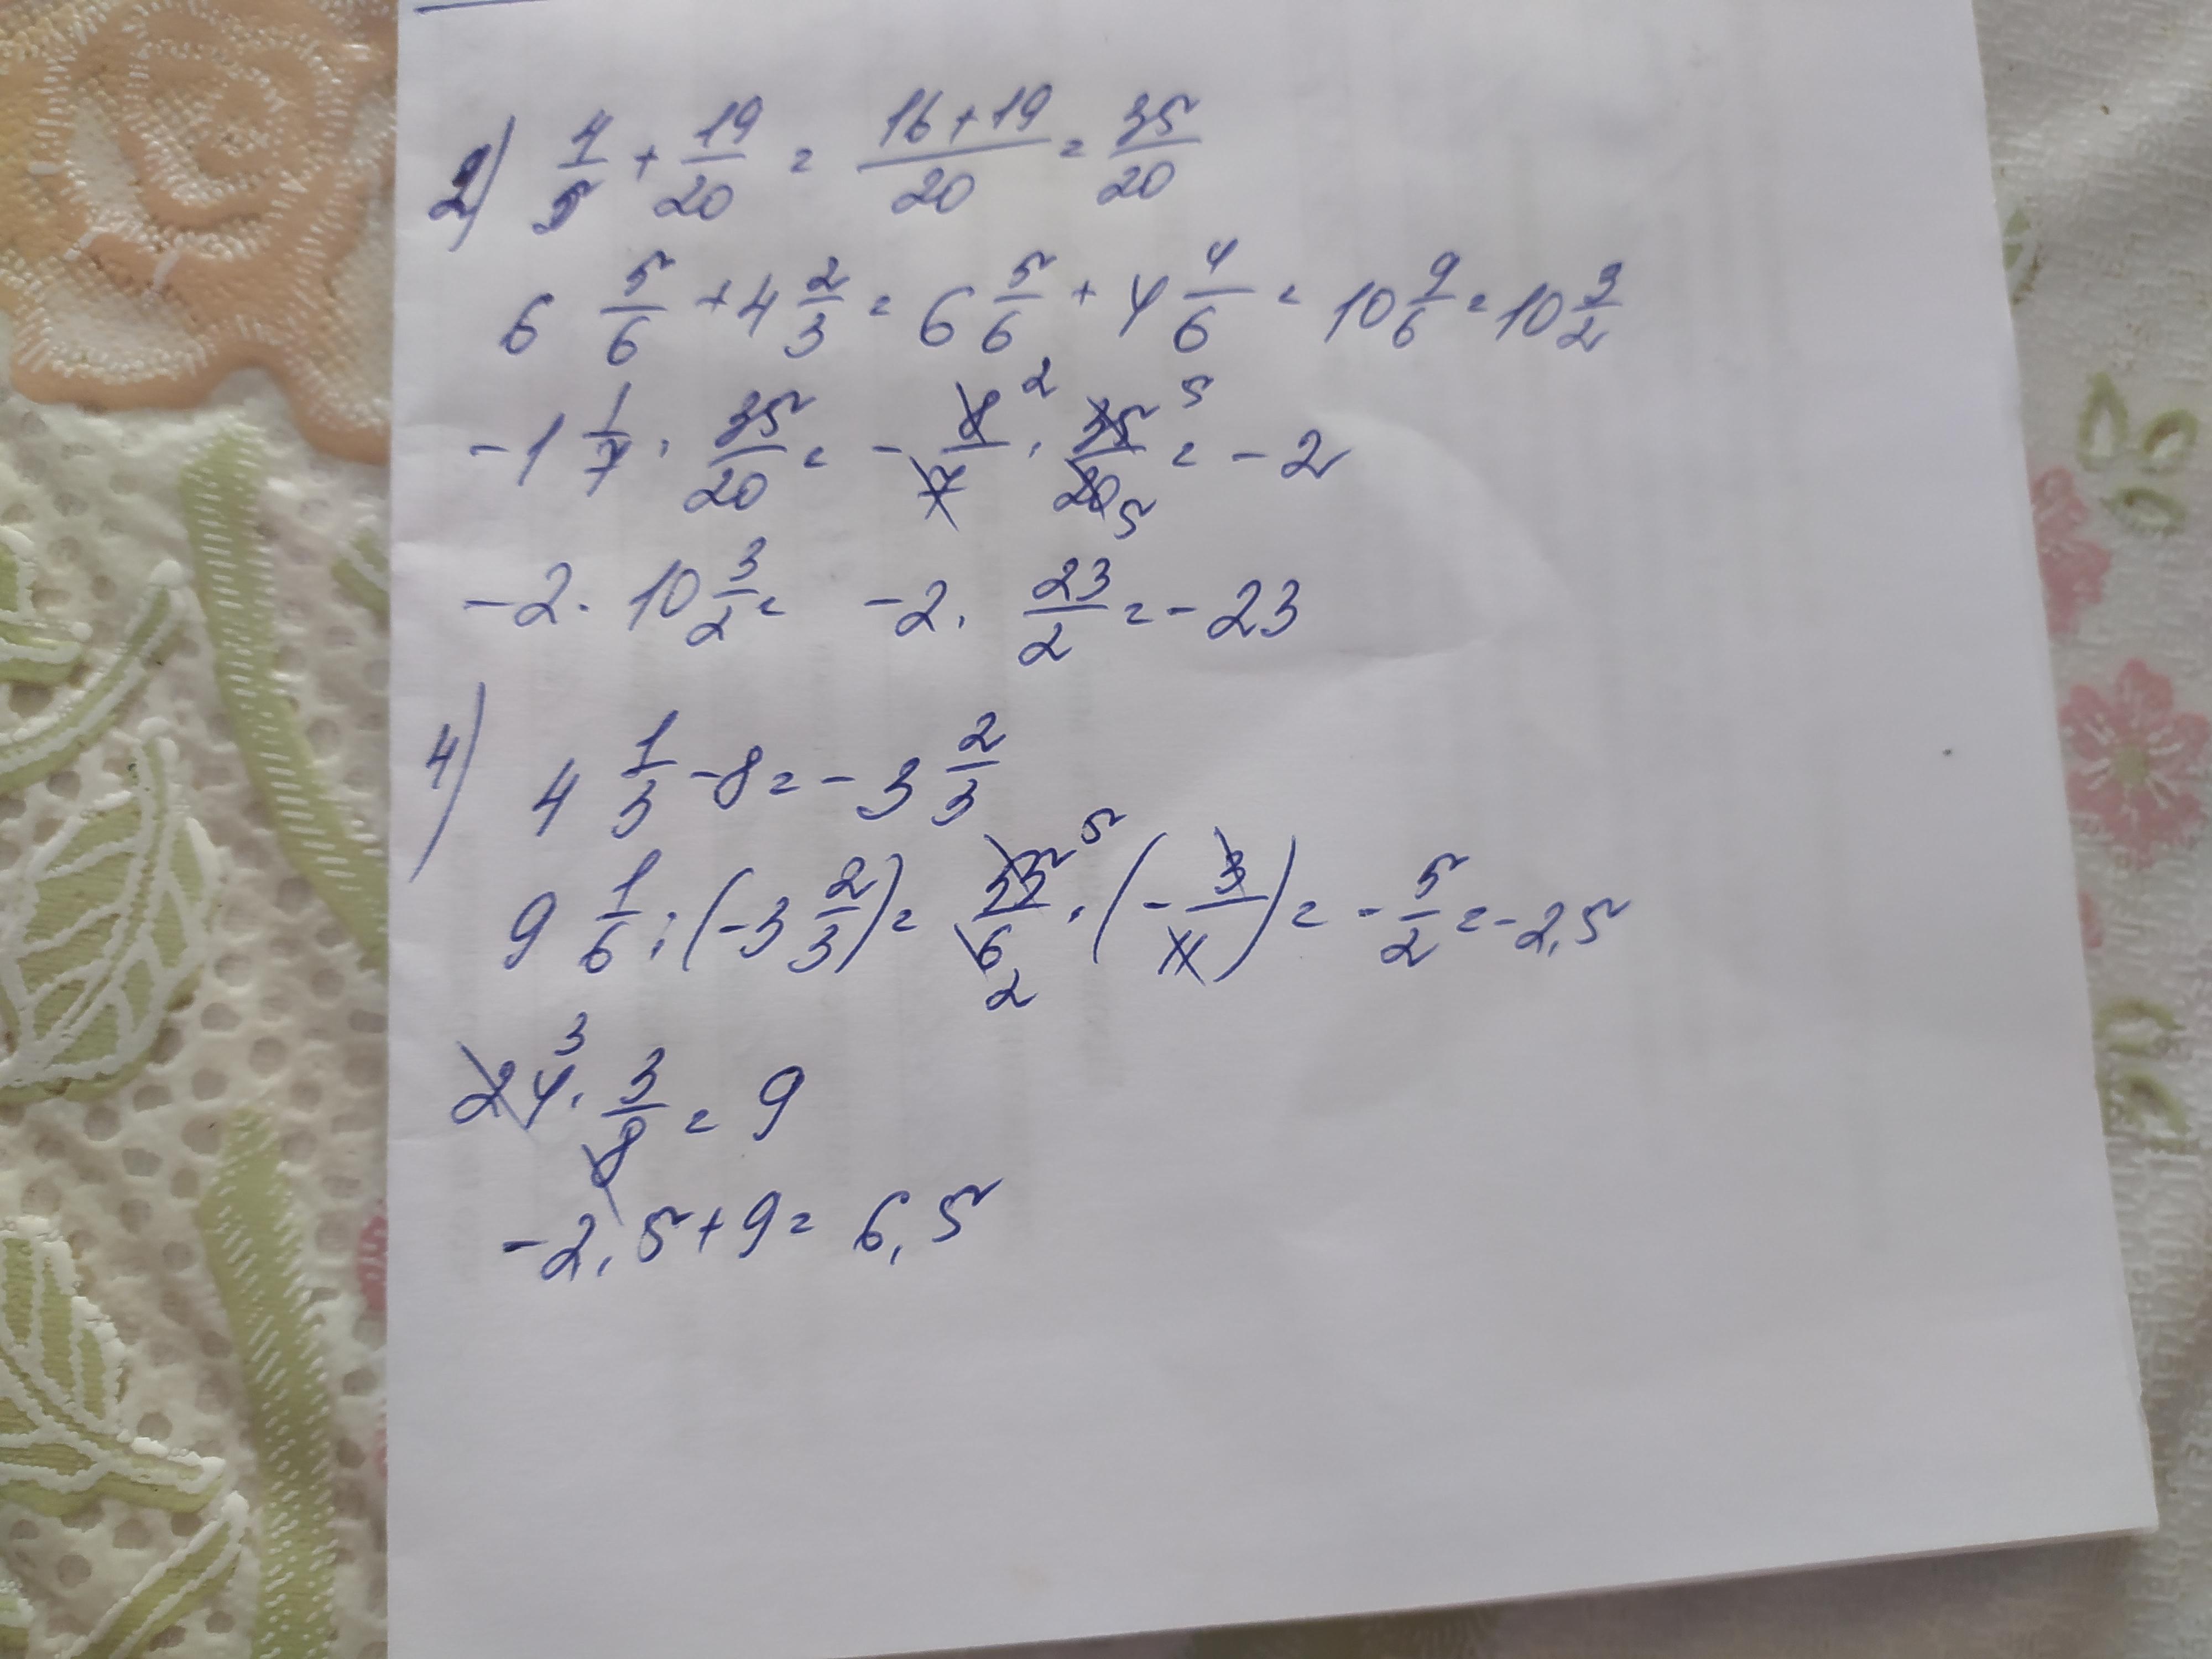 2) 4/5 + 19/20 = (16+19)/20 = 35/20
6 5/6 + 4 2/3 = 6 5/6 + 4 4/6 = 10 9/6 = 10 3/2
-1 1/7 · 35/20 = - 8/7 2 · 35/20 5 5 = -2
-2 · 10 3/2 = -2 · 23/2 = -23
4) 4 1/3 - 8 = -3 2/3
9 1/6 : (-3 2/3) = 55/6 5 2 · (- 3/11) = - 5/2 = -2,5
24 3 · 3/8 = 9
-2,5 + 9 = 6,5